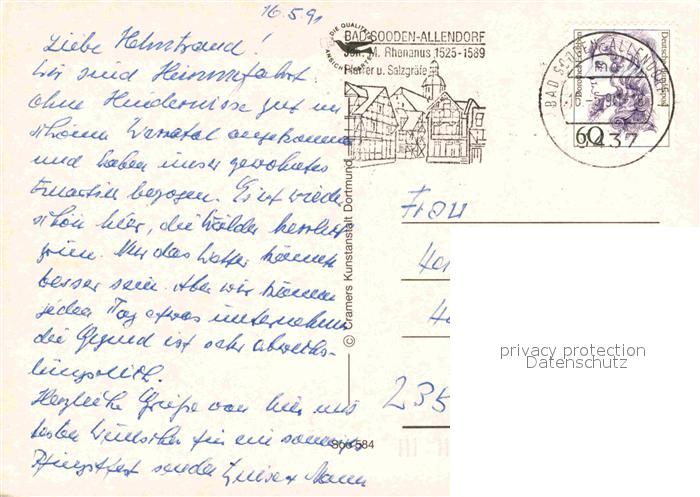 16.5.91
Liebe Helmtraud!
Wir sind Himmelfahrt
ohne Hindernisse gut im
schönen Werratal angekommen
und haben unser gewohntes
Quartier bezogen. Es ist wieder
schön hier, die Wälder herrlich
grün. Nur das Wetter könnte
besser sein. Aber wir können
jeden Tag etwas unternehmen
die Gegend ist sehr abwechs-
lungsreich.
Herzliche Grüße von hier mit
besten Wünschen für ein sonniges
Pfingstfest senden Luise u. Mann
DIE QUALITÄTS
ANSICHTSKARTE
BAD SOODEN-ALLENDORF
Joh. M. Rhenanus 1525-1589
Pfarrer u. Salzgräfe
BAD SOODEN-ALLENDORF
Deutsche Bundespost
60
437
© Cramers Kunstanstalt Dortmund
Soo 584
Frau
235
privacy protection
Datenschutz